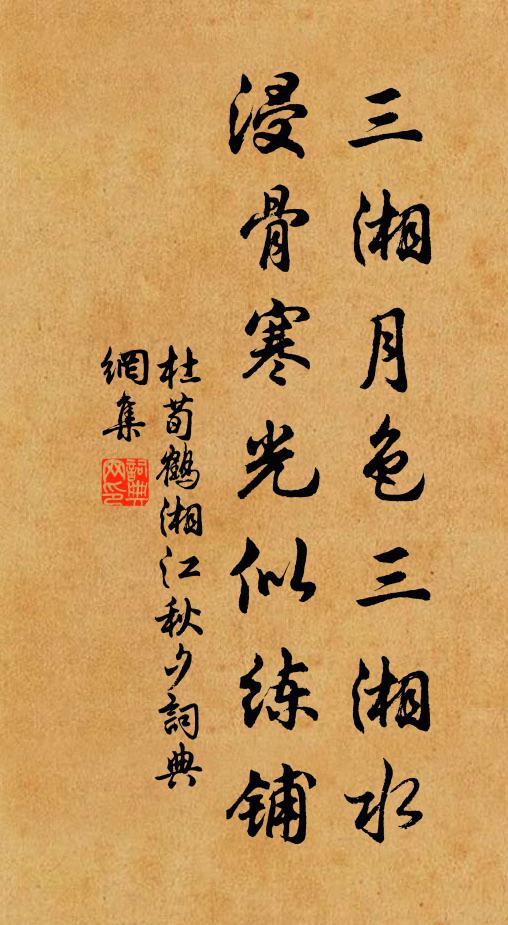 三湘月色三湘水
浸骨寒光似练铺
杜荀鶴湘江秋夕詞典
網集
詞典網印